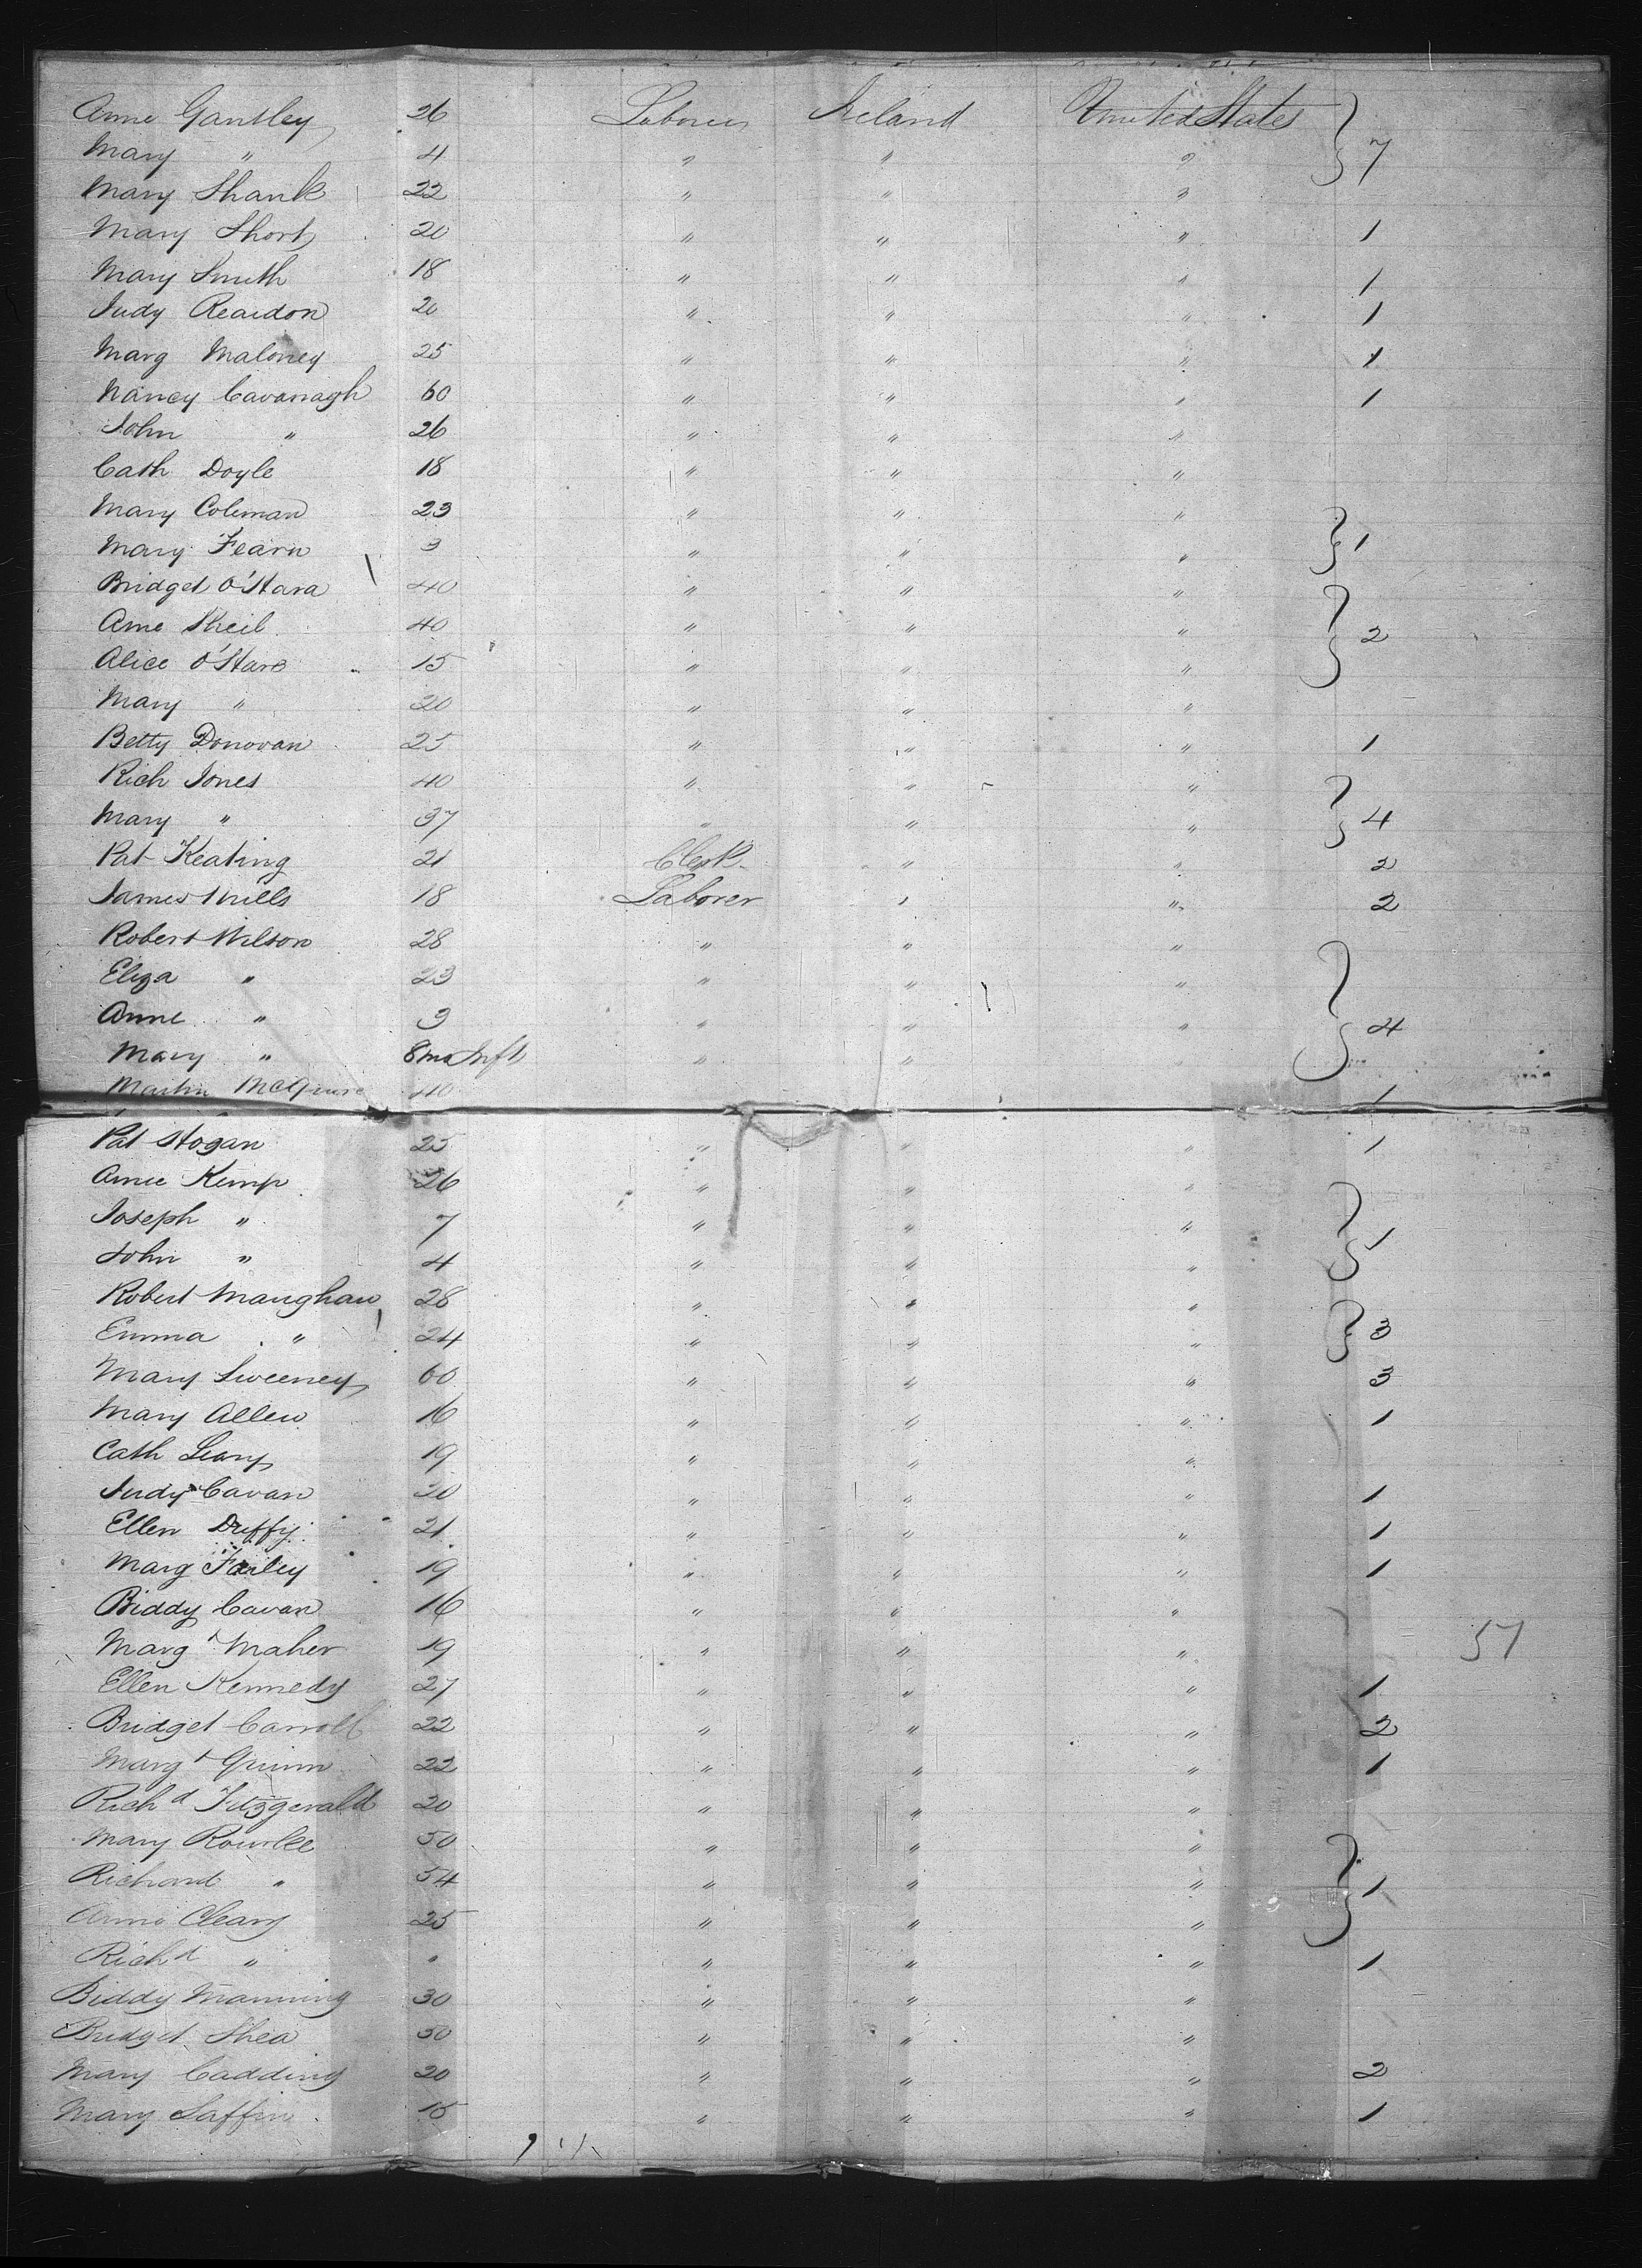 Anne Gantley 26 Laborer Ireland United States } 7
Mary " 4 " " "
Mary Shank 22 " " "
Mary Short 20 " " " 1
Mary Smith 18 " " " 1
Judy Reardon 20 " " " 1
Marg Maloney 25 " " " 1
Nancy Cavanagh 60 " " " 1
John " 26 " " "
Cath Doyle 18 " " "
Mary Coleman 23 " " "
Mary Fearn 3 " " " } 1
Bridget O'Hara 40 " " "
Anne Sheil 40 " " " } 2
Alice O'Hara 15 " " "
Mary " 20 " " "
Betty Donovan 25 " " " 1
Rich Jones 40 " " "
Mary " 37 " " " } 4
Pat Keating 21 Clerk " " 2
James Mills 18 Laborer " " 2
Robert Wilson 28 " " "
Eliza " 23 " " "
Anne " 3 " " " } 4
Mary " 8 mo Inft " "
Martin McGuire 40 1
Pat Hogan 25 " " " 1
Anne Kemp 26 " " "
Joseph " 7 " " " } 1
John " 4 " " "
Robert Manghan 28 " " "
Emma " 24 " " " } 3
Mary Sweeney 60 " " " 3
Mary Allen 16 " " " 1
Cath Leary 19 " " "
Judy Cavan 20 " " " 1
Ellen Duffy 21 " " " 1
Marg Farley 19 " " " 1
Biddy Cavan 16 " " "
Margt Maher 19 " " " 57
Ellen Kennedy 27 " " " 1
Bridget Carroll 22 " " " 2
Margt Quinn 22 " " " 1
Richd Fitzgerald 20 " " "
Mary Rourke 50 " " "
Richard " 54 " " " } 1
Anne Cleary 25 " " "
Richd " " " " " 1
Biddy Manning 30 " " "
Bridget Shea 50 " " "
Mary Cadding 20 " " " 2
Mary Laffin 15 " " " 1